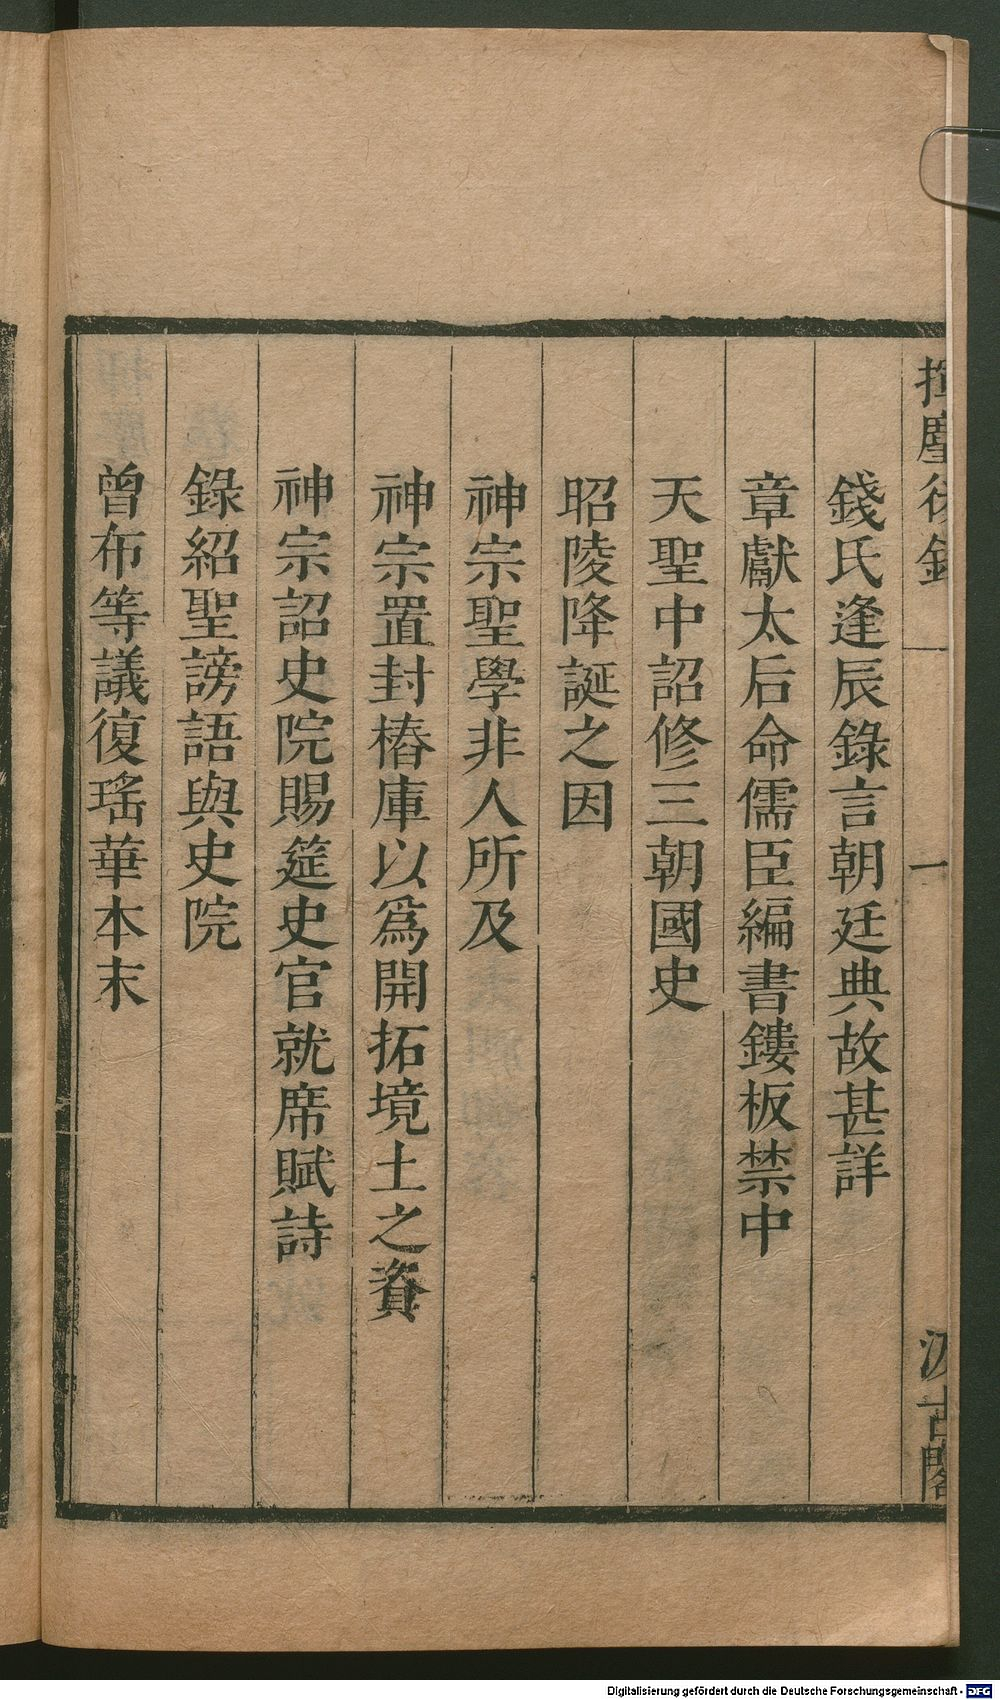 揮麈後錄 一 一 汲古閣
錢氏逢辰錄言朝廷典故甚詳
章獻太后命儒臣編書鏤板禁中
天聖中詔修三朝國史
昭陵降誕之因
神宗聖學非人所及
神宗置封樁庫以為開拓境土之資
神宗詔史院賜筵史官就席賦詩
錄紹聖謗語與史院
曾布等議復瑤華本末
Digitalisierung gefördert durch die Deutsche Forschungsgemeinschaft - DFG